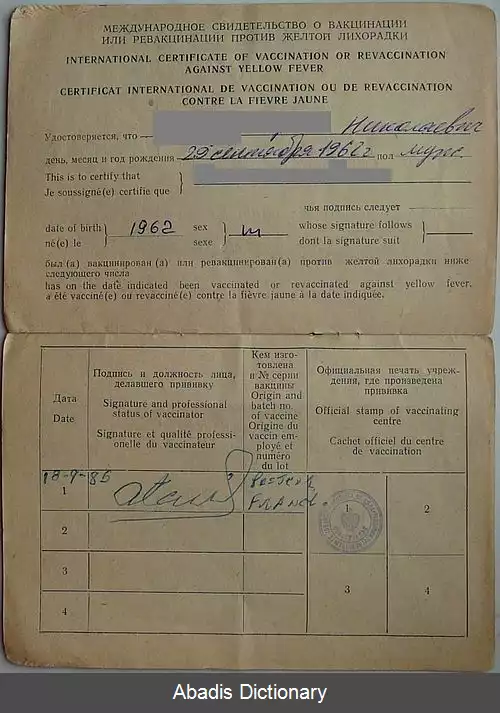 МЕЖДУНАРОДНОЕ СВИДЕТЕЛЬСТВО О ВАКЦИНАЦИИ
ИЛИ РЕВАКЦИНАЦИИ ПРОТИВ ЖЕЛТОЙ ЛИХОРАДКИ
INTERNATIONAL CERTIFICATE OF VACCINATION OR REVACCINATION
AGAINST YELLOW FEVER
CERTIFICAT INTERNATIONAL DE VACCINATION OU DE REVACCINATION
CONTRE LA FIEVRE JAUNE
Удостоверяется, что Николаевич
день, месяц и год рождения 29 сентября 1962 г пол муж.
This is to certify that
Je soussigné(e) certifie que
чья подпись следует
date of birth 1962 sex m whose signature follows
né(e) le sexe dont la signature suit
был (а) вакцинирован (а) или ревакцинирован(а) против желтой лихорадки ниже
следующего числа
has on the date indicated been vaccinated or revaccinated against yellow fever.
a été vacciné(e) ou revacciné(e) contre la fièvre jaune à la date indiquée.
Дата
Date
Подпись и должность лица,
делавшего прививку
Signature and professional
status of vaccinator
Signature et qualité professi-
onelle du vaccinateur
Кем изго-
товлена
и № серии
вакцины
Origin and
batch no.
of vaccine
Origine du
vaccin em-
ployé et
numéro
du lot
Официальная печать учреж-
дения, где произведена
прививка
Official stamp of vaccinating
centre
Cachet officiel du centre
de vaccination
18-9-86
1
Pasteur
France
1
2
2
3
3
4
4
Abadis Dictionary